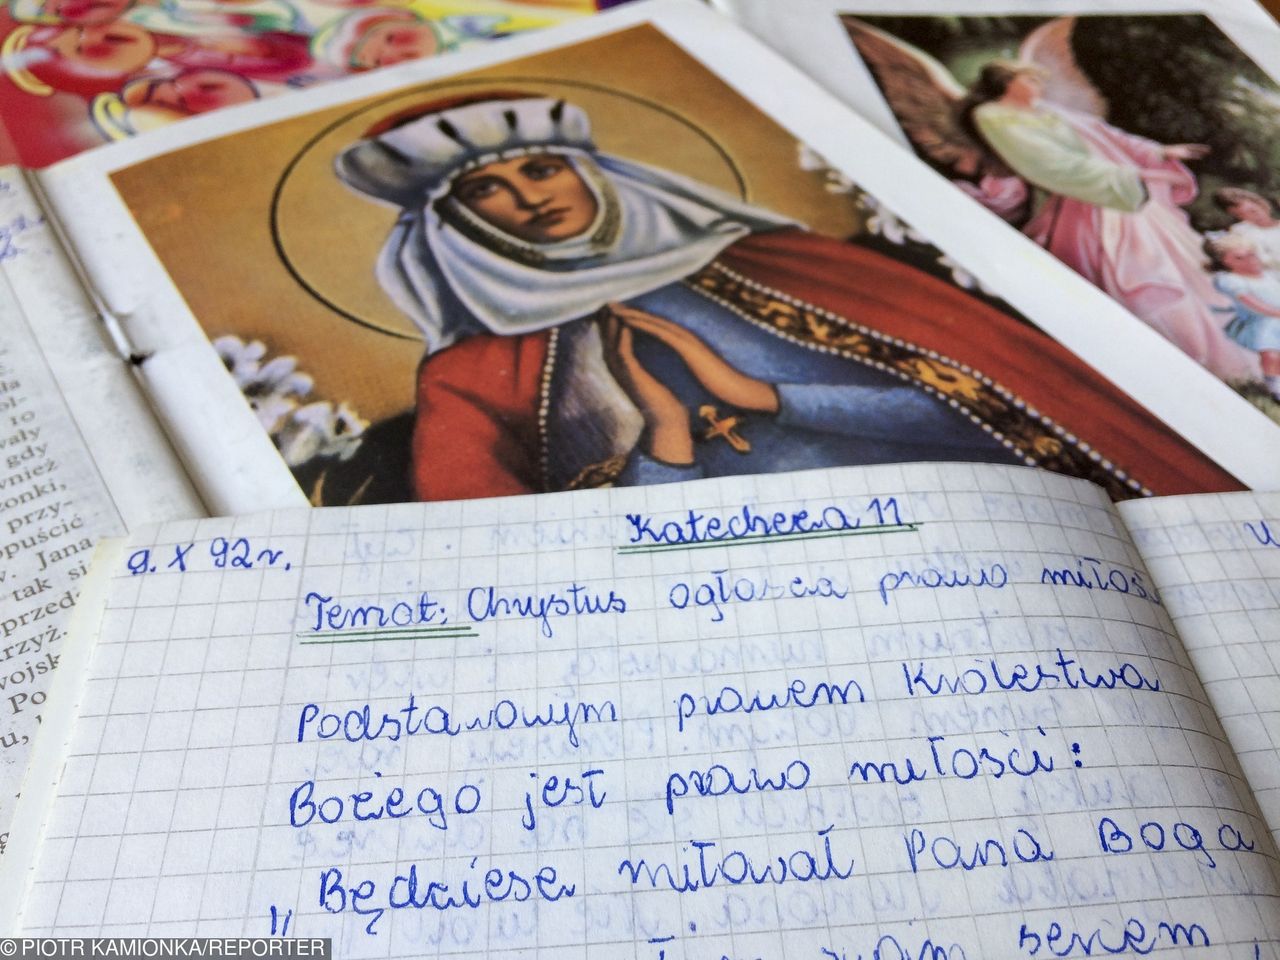 9. X 92r.
Katecheza 11
Temat: Chrystus ogłasza prawo miłoś
Podstawowym prawem Królestwa
Bożego jest prawo miłości:
"Będziesz miłował Pana Boga
swoim sercem,
ła
ol-
10
wały
gdy
wnież
zonki,
przy-
opuścić
w. Jana
tak si
przed
rzyż.
wojsk
Po
u,
© PIOTR KAMIONKA/REPORTER